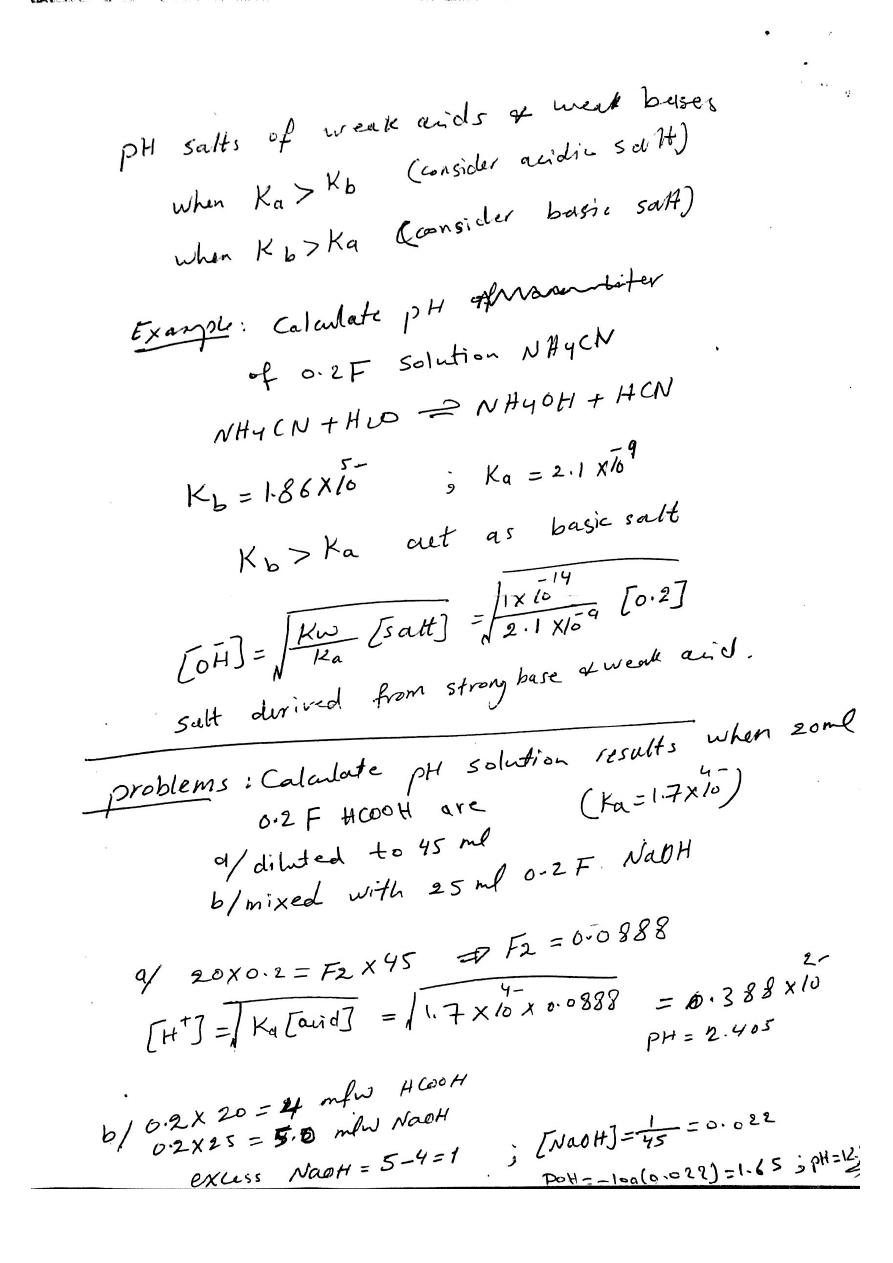 pH salts of weak acids & weak bases
when Ka > Kb (consider acidic salt)
when Kb > Ka (consider basic salt)
Example: Calculate pH
of 0.2F solution NH4CN
NH4CN + H2O ⇌ NH4OH + HCN
Kb = 1.86 x 10^5- ; Ka = 2.1 x 10^-9
Kb > Ka act as basic salt
[OH^-] = √(Kw/Ka [salt]) = √(1 x 10^-14 / 2.1 x 10^-9 [0.2])
salt derived from strong base & weak acid.
problems : Calculate pH solution results when 20ml
0.2 F HCOOH are (Ka = 1.7 x 10^4-)
a/ diluted to 45 ml
b/ mixed with 25 ml 0.2 F. NaOH
a/ 20 x 0.2 = F2 x 45 ⇒ F2 = 0.0888
[H^+] = √(Ka [acid]) = √(1.7 x 10^4- x 0.0888) = 0.388 x 10^2-
pH = 2.405
b/ 0.2 x 20 = 4 mfw HCOOH
0.2 x 25 = 5.0 mfw NaOH
excess NaOH = 5-4=1 ; [NaOH] = 1/45 = 0.022
POH = -log(0.022) = 1.65 ; pH = 12.